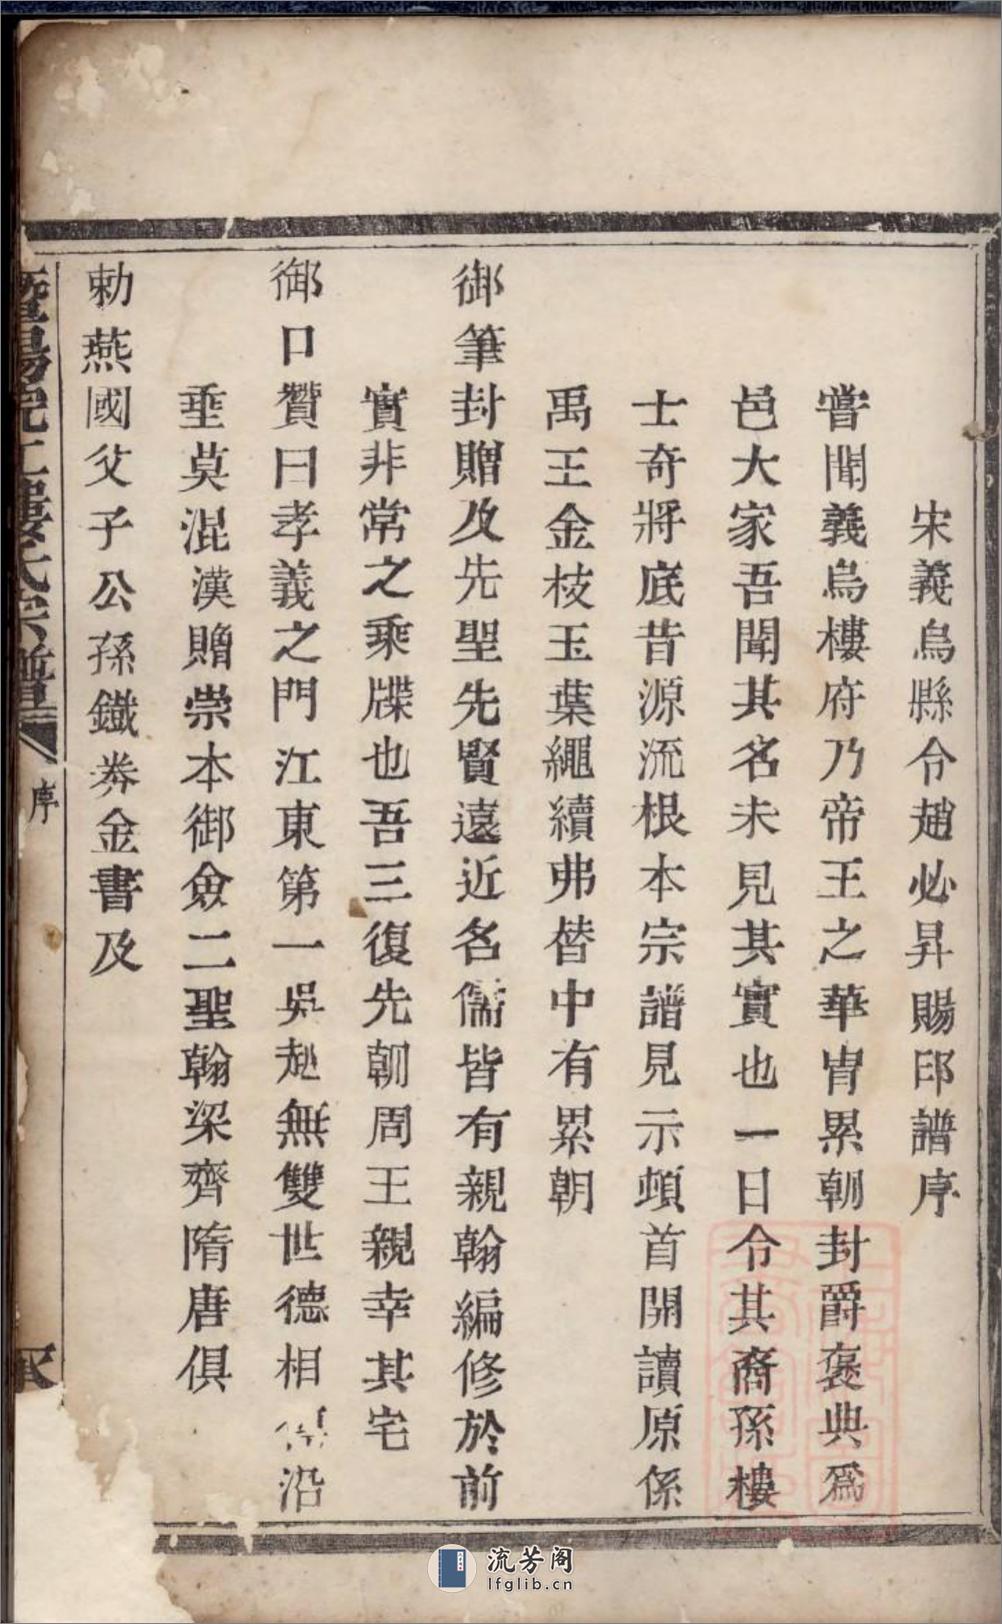 宋義烏縣令趙必昇賜邱譜序
嘗聞義烏樓府乃帝王之華胄累朝封爵褒典爲
邑大家吾聞其名未見其實也一日令其裔孫樓
士奇將底昔源流根本宗譜見示頓首開讀原係
禹王金枝玉葉繩續弗替中有累朝
御筆封贈及先聖先賢遠近名儒皆有親翰編修於前
實非常之乘牒也吾三復先朝周王親幸其宅
御口贊曰孝義之門江東第一吳越無雙世德相 沿
垂莫混漢贈崇本御僉二聖翰梁齊隋唐俱
勅燕國父子公孫鐵券金書及
暨陽 樓氏宗譜
序
流芳阁
lfglib.cn